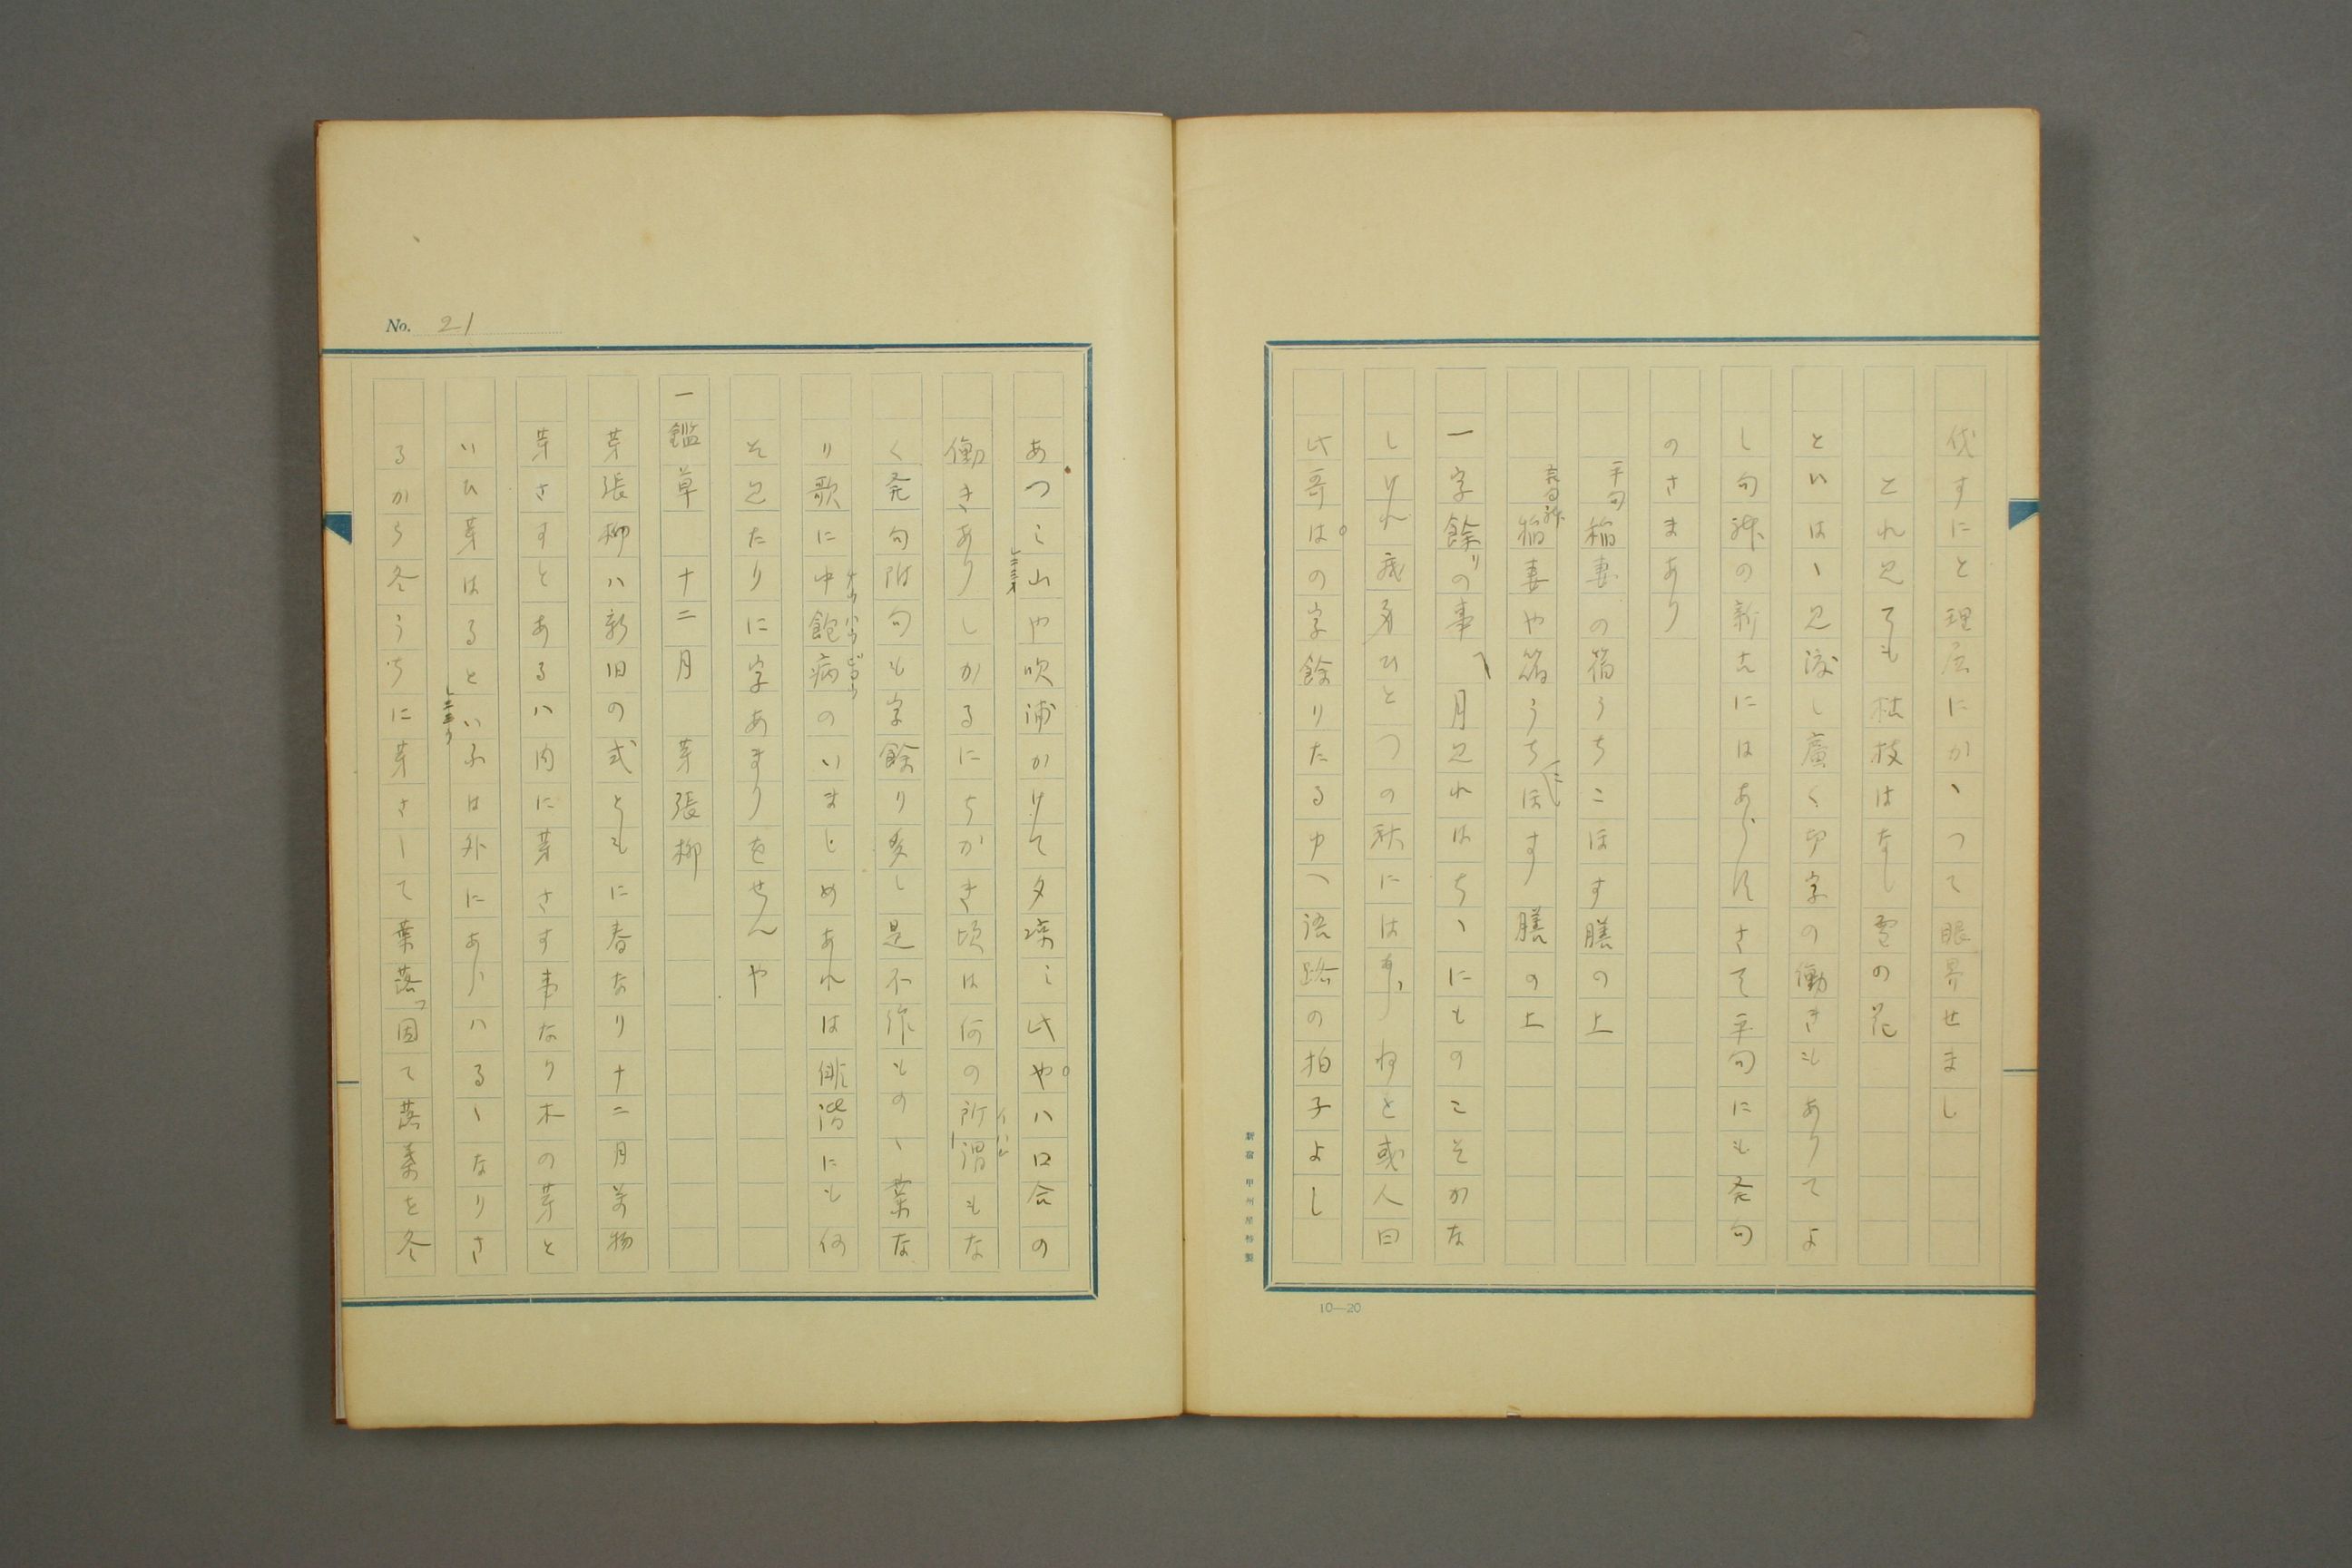 伐すにと理屈にかゝつて眼界せまし
とれ見ても枯枝はなし雪の花
といはゝ見渡し廣く切字の働きもありてよ
し句躰の新古にはあらんさて平句にも発句
のさまあり
平句 稲妻の宿うちこほす膳の上
発句躰 稲妻や宿うちこほす膳の上
一字餘りの事 月見れはちゝにものこそかな
しけれ我身ひとつの秋にはあらねと或人曰
此哥はの字餘りたるゆへ語路の拍子よし
新宿 甲州屋特製
10—20
No. 21
あつミ山や吹浦かけて夕凉ミ此やハ口合の
働きありしかるにちかき頃は何の所謂もな
く発句附句も字餘り多し是不作ものゝ業な
り歌に中飽病のいましめあれは俳諧にも何
そ見たりに字あまりをせんや
一鑑草 十二月 芽張柳
芽張柳ハ新旧の式ともに春なり十二月若物
芽さすとあるハ内に芽さす事なり木の芽と
いひ芽はるといふは外にあらハるゝなりさ
るから冬うちに芽さして葉落つ固て落葉を冬